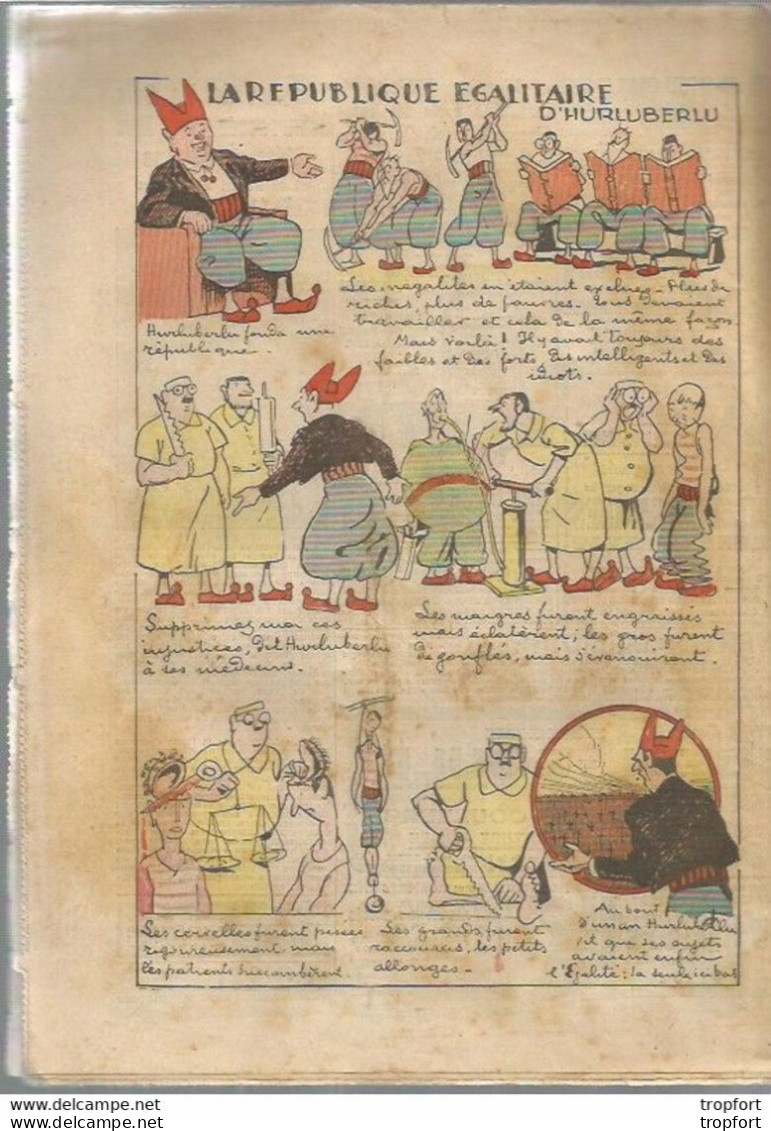 LA REPUBLIQUE EGALITAIRE
D'HURLUBERLU
Hurluberlu fonda une
république.
Les inégalités en étaient exclues. Plus de
riches, plus de pauvres. Tous devaient
travailler et cela de la même façon
Mais voilà! Il y avait toujours des
faibles et des forts, des intelligents et des
idiots.
Supprimez moi ces
injustices, dit Hurluberlu
à ses médecins.
Les maigres furent engraissés
mais éclatèrent; les gros furent
dégonflés, mais s'évanouirent.
Les cervelles furent pesées
rigoureusement mais
les patients succombèrent.
Les grands furent
raccourcis, les petits
allongés -
Au bout
d'un an Hurluberlu
vit que ses sujets
avaient enfin
l'Égalité: la seule ici bas
delcampe.net
tropfort
delcampe.net
tropfort